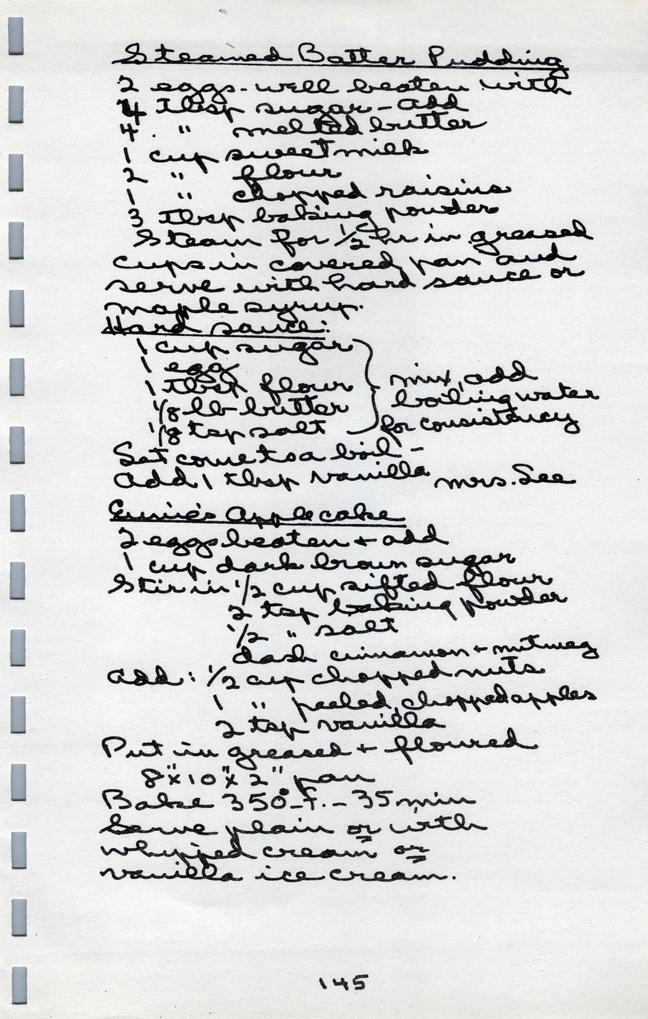 Steamed Batter Pudding
2 eggs - well beaten with
4 tbsp sugar - add
4 " melted butter
1 cup sweet milk
2 " flour
1 " chopped raisins
3 tbsp baking powder
Steam for 1/2 hr in greased
cups in covered pan and
serve with hard sauce or
maple syrup.
Hard sauce:
1 cup sugar
1 egg
1 tbsp flour
1/8 lb butter
1/8 tsp salt
mix, add
boiling water
for consistancy
Set come to a boil -
Add 1 tbsp vanilla Mrs. See
Eunie's Applecake
2 eggs beaten + add
1 cup dark brown sugar
Stir in 1/2 cup sifted flour
2 tsp baking powder
1/2 " salt
dash cinnamon + nutmeg
Add: 1/2 cup chopped nuts
1 " peeled, chopped apples
2 tsp vanilla
Put in greased + floured
8" x 10" x 2" pan
Bake 350° F. - 35 min
Serve plain or with
whipped cream or
vanilla ice cream.
145